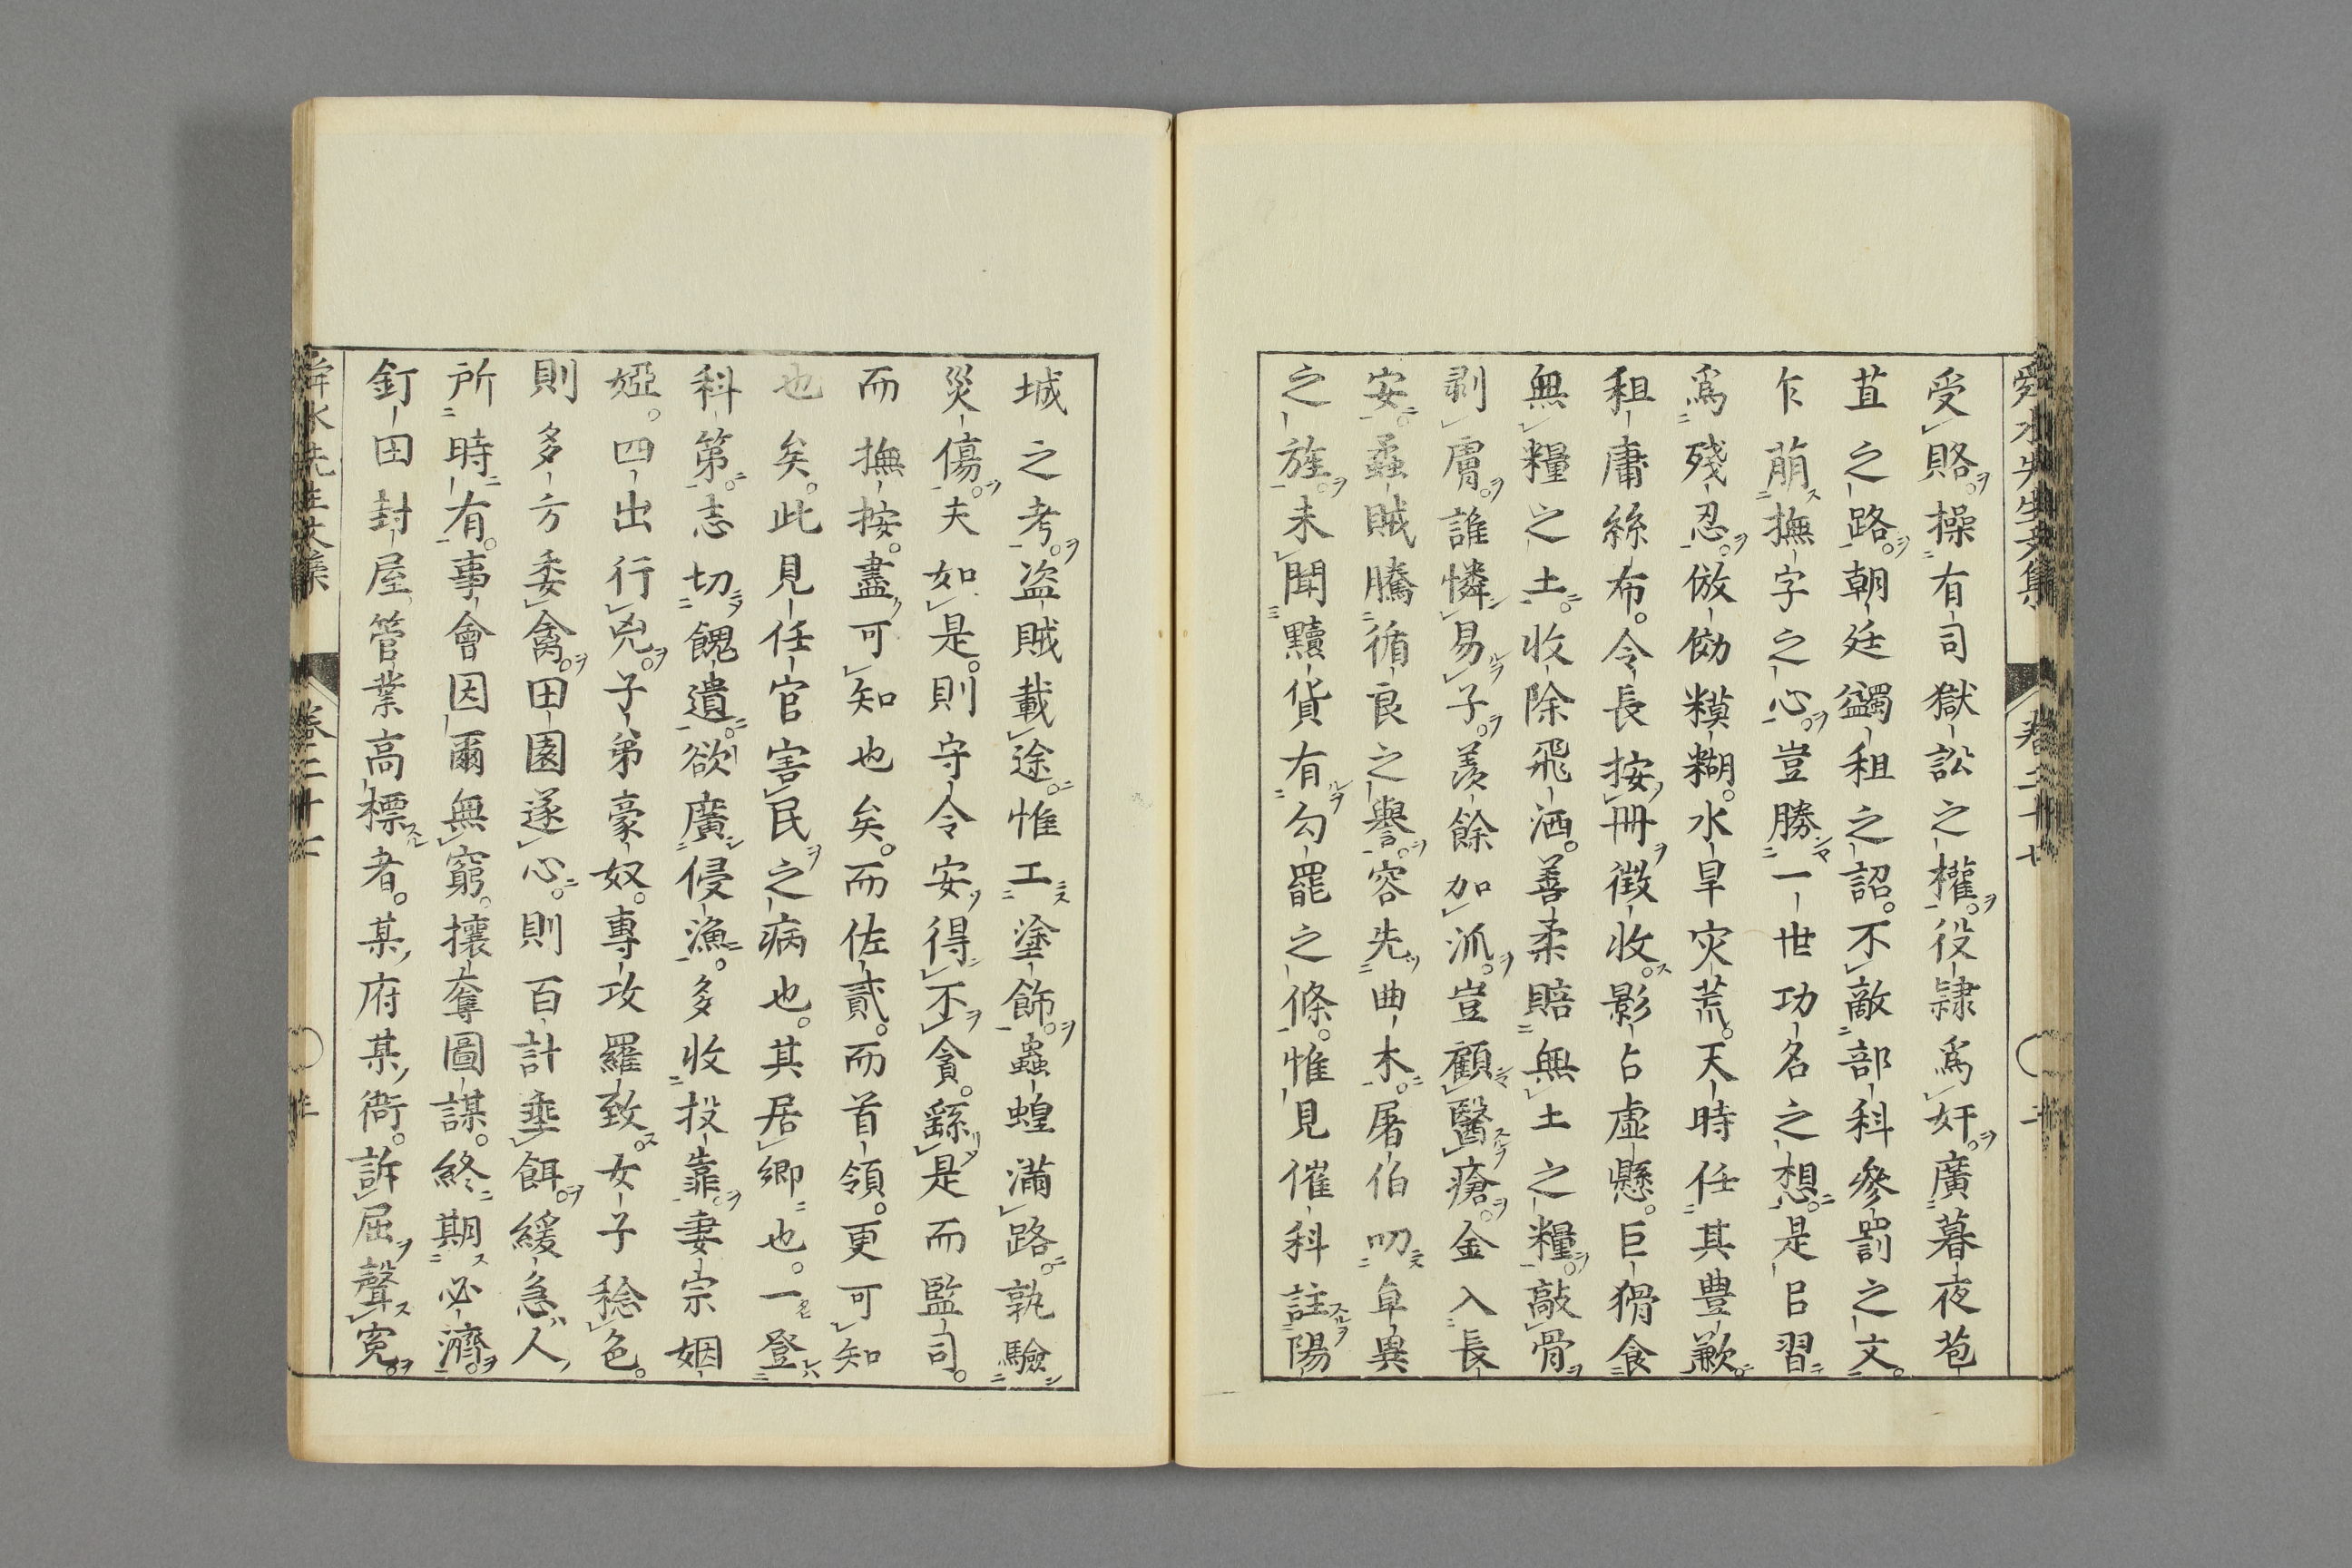 舜水先生文集　卷二十七
受賂。操有司獄訟之權。役隷爲奸。廣暮夜苞
苴之路。朝廷蠲租之詔。不敵部科參罰之文。
乍萠撫字之心。豈勝一世功名之想。是㠯習
爲殘忍。倣傚糢糊。水旱灾荒。天時任其豊歉。
租庸絲布。令長按冊徵收。影占虛懸。巨猾食
無糧之土。收除飛洒。善柔賠無土之糧。敲骨
剥膚。誰憐易子。羨餘加派。豈顧醫瘡。金入長
安。蟊賊騰循良之譽。容先曲木。屠伯叨卓異
之旌。未聞黷貨有勾罷之條。惟見催科註陽
城之考。盗賊載途。惟工塗飾。蟲蝗滿路。孰驗
災傷。夫如是。則守令安得不貪。繇是而監司。
而撫按。盡可知也矣。而佐貳。而首領。更可知
也矣。此見任官害民之病也。其居鄉也。一登
科第。志切餽遺。欲廣侵漁。多收投靠。妻宗姻
婭。四出行兇。子弟豪奴。專攻羅致。女子稔色。
則多方委禽。田園遂心。則百計垂餌。緩急人
所時有。事會因爾無窮。攘奪圖謀。終期必濟。
釘田封屋。管業高標者。某府某衙。訴屈聲寃
舜水先生文集　卷二十七